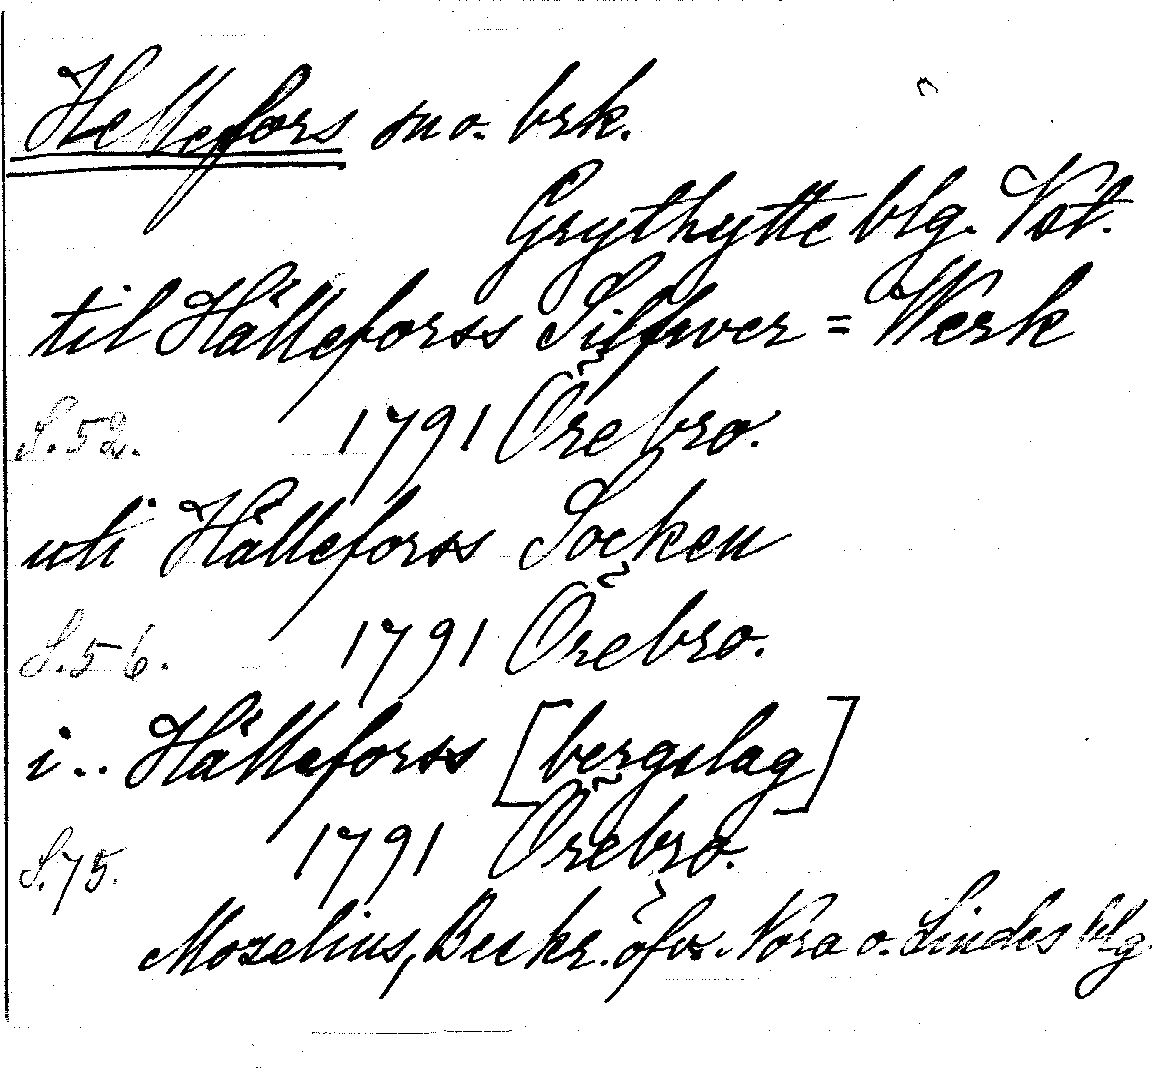 Hellefors sn o. brk.
Grythytte blg. Vst.
til Hälleforss Silfwer = Werk
S.52. 1791 Örebro.
uti Hälleforss Socken
S.56. 1791 Örebro.
i .. Hälleforss [bergslag]
S.75. 1791 Örebro.
Moselius, Beskr. öfv. Nora o. Lindes blg.